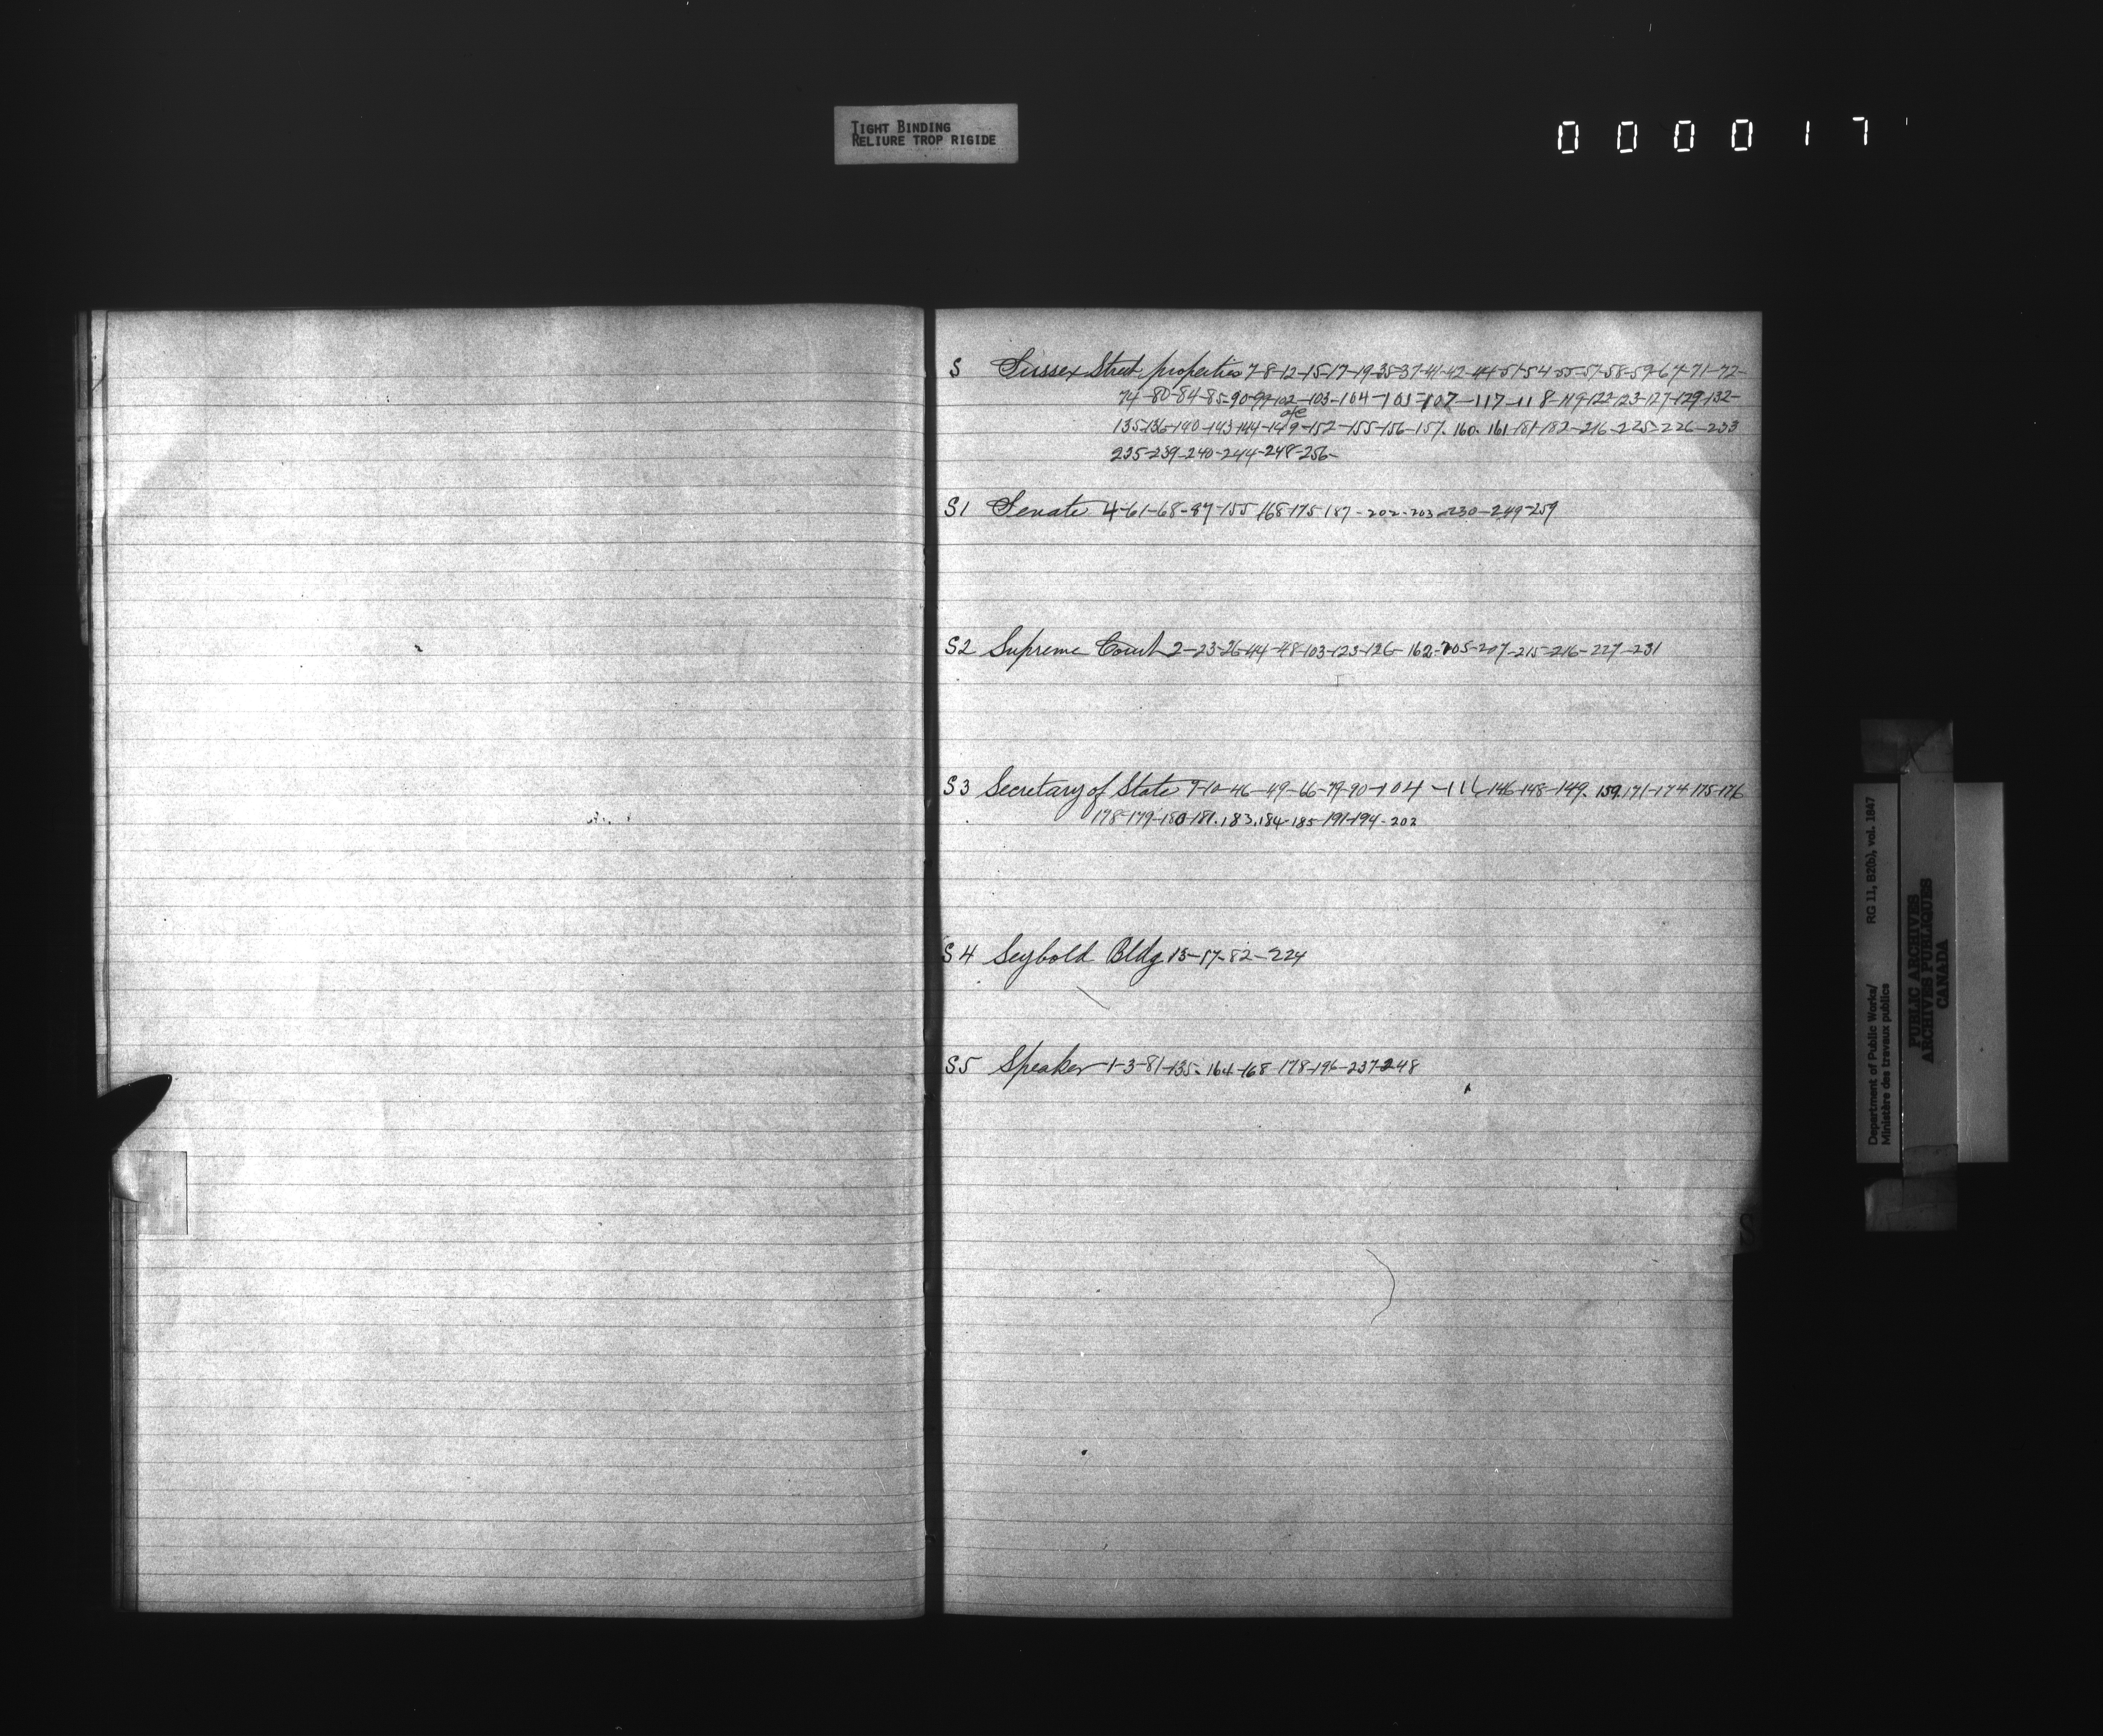 TIGHT BINDING
RELIURE TROP RIGIDE
000017
S Sussex Street properties 7-8-12-15-17-19-35-37-41-42-44-51-54-55-57-58-59-67-71-72-
74-80-84-85-90-99-102-103-104-105-107-117-118-119-122-123-127-129-132-
135-136-140-143-144-149-152-155-156-157. 160. 161-181-182-216-225-226-233
235-239-240-244-248-256-
S1 Senate 4-61-68-97-155 168-175-187-202-203-230-249-259
S2 Supreme Court 2-23-26-44-48-103-123-126-162-205-207-215-216-227-231
S3 Secretary of State 9-10-46-49-66-79-90-104-116-146-148-149. 159. 171-174-175-176
178-179-180-181. 183. 184-185-191-194-202
S4 Seybold Bldg 15-57-82-224
S5 Speaker 1-3-81-135. 164-168-178-196-237-248
S
Department of Public Works/ RG 11, B2(b), vol. 1847
Ministère des travaux publics
PUBLIC ARCHIVES
ARCHIVES PUBLIQUES
CANADA